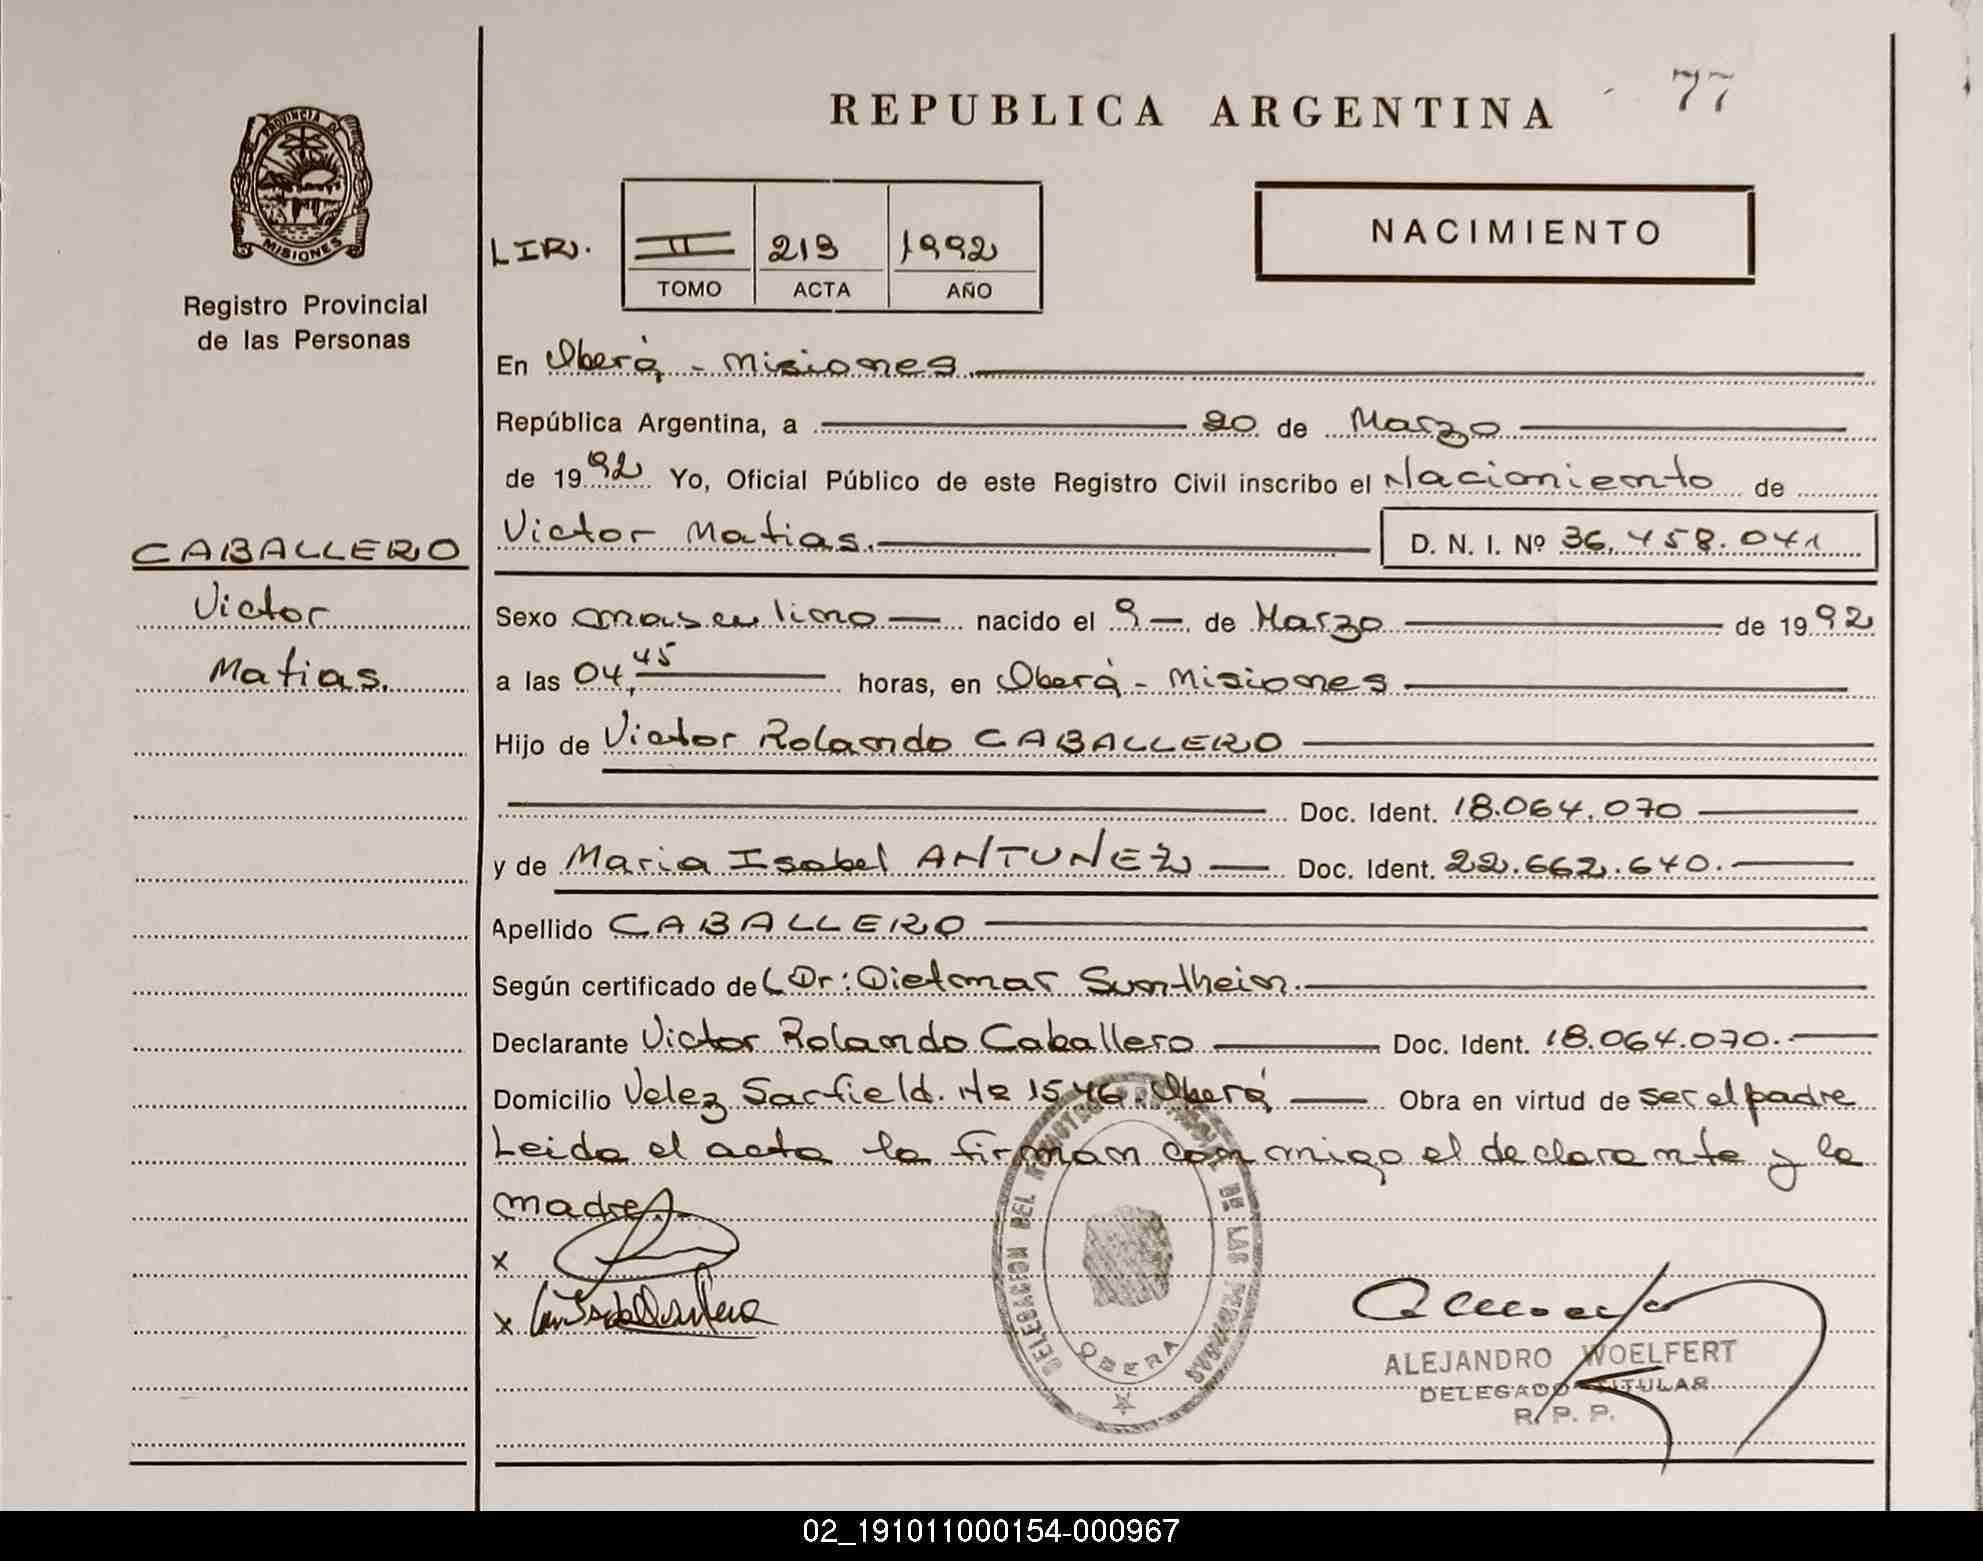 77
REPUBLICA ARGENTINA
PROVINCIA DE
MISIONES
Registro Provincial
de las Personas
LIR. II 219 1992
TOMO ACTA AÑO
NACIMIENTO
En Oberá - Misiones.
República Argentina, a 20 de Marzo
de 1992 Yo, Oficial Público de este Registro Civil inscribo el Nacimiento de
Victor Matias. D. N. I. Nº 36.458.041
CABALLERO
Victor
Matias.
Sexo masculino nacido el 9 de Marzo de 1992
a las 04,45 horas, en Oberá - Misiones
Hijo de Victor Rolando CABALLERO
Doc. Ident. 18.064.070
y de Maria Isabel ANTUNEZ Doc. Ident. 22.662.640.
Apellido CABALLERO
Según certificado de Dr: Dietmar Suntheim.
Declarante Victor Rolando Caballero Doc. Ident. 18.064.070.
Domicilio Velez Sarfield. Nº 1546. Oberá Obra en virtud de ser el padre
Leida el acta la firman conmigo el declarante y la
madre.
x
x
DELEGACION DEL REGISTRO DE LAS PERSONAS
OBERA
ALEJANDRO WOELFERT
DELEGADO TITULAR
R. P. P.
02_191011000154-000967